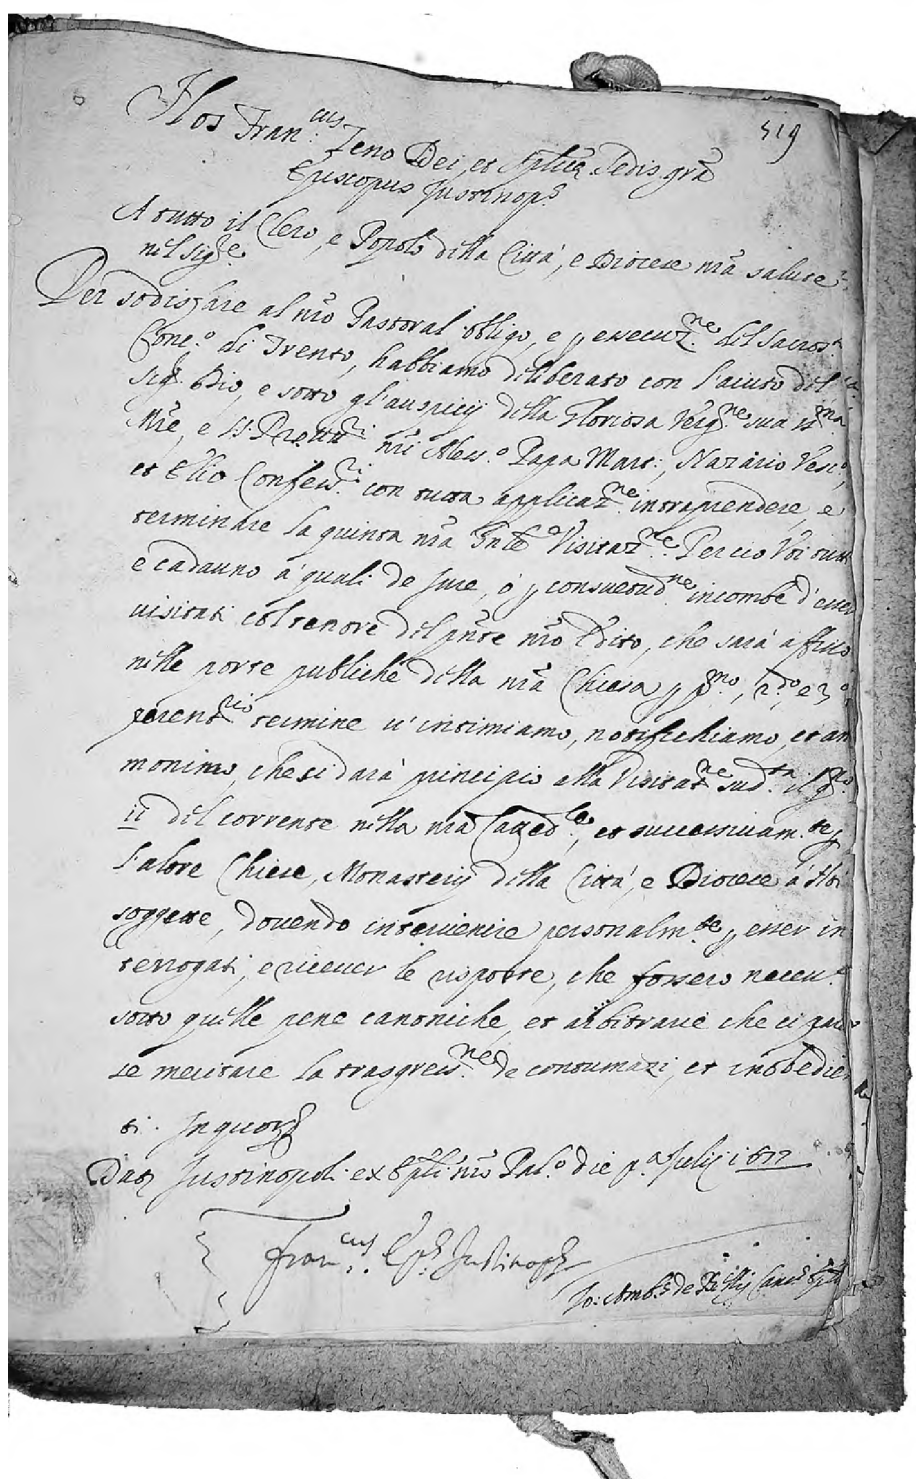 519
Nos Fran.cus Zeno Dei, et Aplicæ Sedis grã
Episcopus Justinop.s
A tutto il Clero, e Popolo della Città, e Diocese nrã salute
nel Sig.re
Per sodisfare al nrõ Pastoral obligo, e p essecuz.ne del Sacros.to
Conc.o di Trento, habbiamo deliberato con l'aiuto del
Sig.r Dio, e sotto gl'auspicij della Gloriosa Verg.ne sua SS.ma
Mrẽ, e SS. Protett.ri nrĩ Aless.o Papa Mart:, Nazario Vesc.o,
et Elio Confess.ri con tutta applicaz.ne intraprendere, e
terminare la quinta nrã Gnĩle Visitaz.ne. Perciò Voi tutti
e cadauno à quali de Jure, ò p consuetud.ne incombe d'esser
visitati col tenore del pñte nrõ Editto, che sarà affisso
nelle porte publiche della nrã Chiesa p p.mo, 2.do, e 3.o
perent.rio termine v'intimiamo, notifichiamo, et am
monimo, che si darà principio alla Visitat.ne sud.ta il g.no
11 del corrente nella nrã Catted.le, et successivam.te p
l'altre Chiese, Monasterij della Città, e Diocese à Noi
soggette, dovendo intervenire personalm.te p esser in
terrogati, e ricever le risposte, che fossero necess.e
sotto quelle pene canoniche, et arbitrarie che ci par
se meritare la trasgress.ne de contumazi, et inobedien
ti. In quor
Dat Justinopoli ex Epli nrõ Pal.o die p.a Julij 1677
Fran.cus Ep. Justinop.
Io: Amb.s de Canc. Ep.